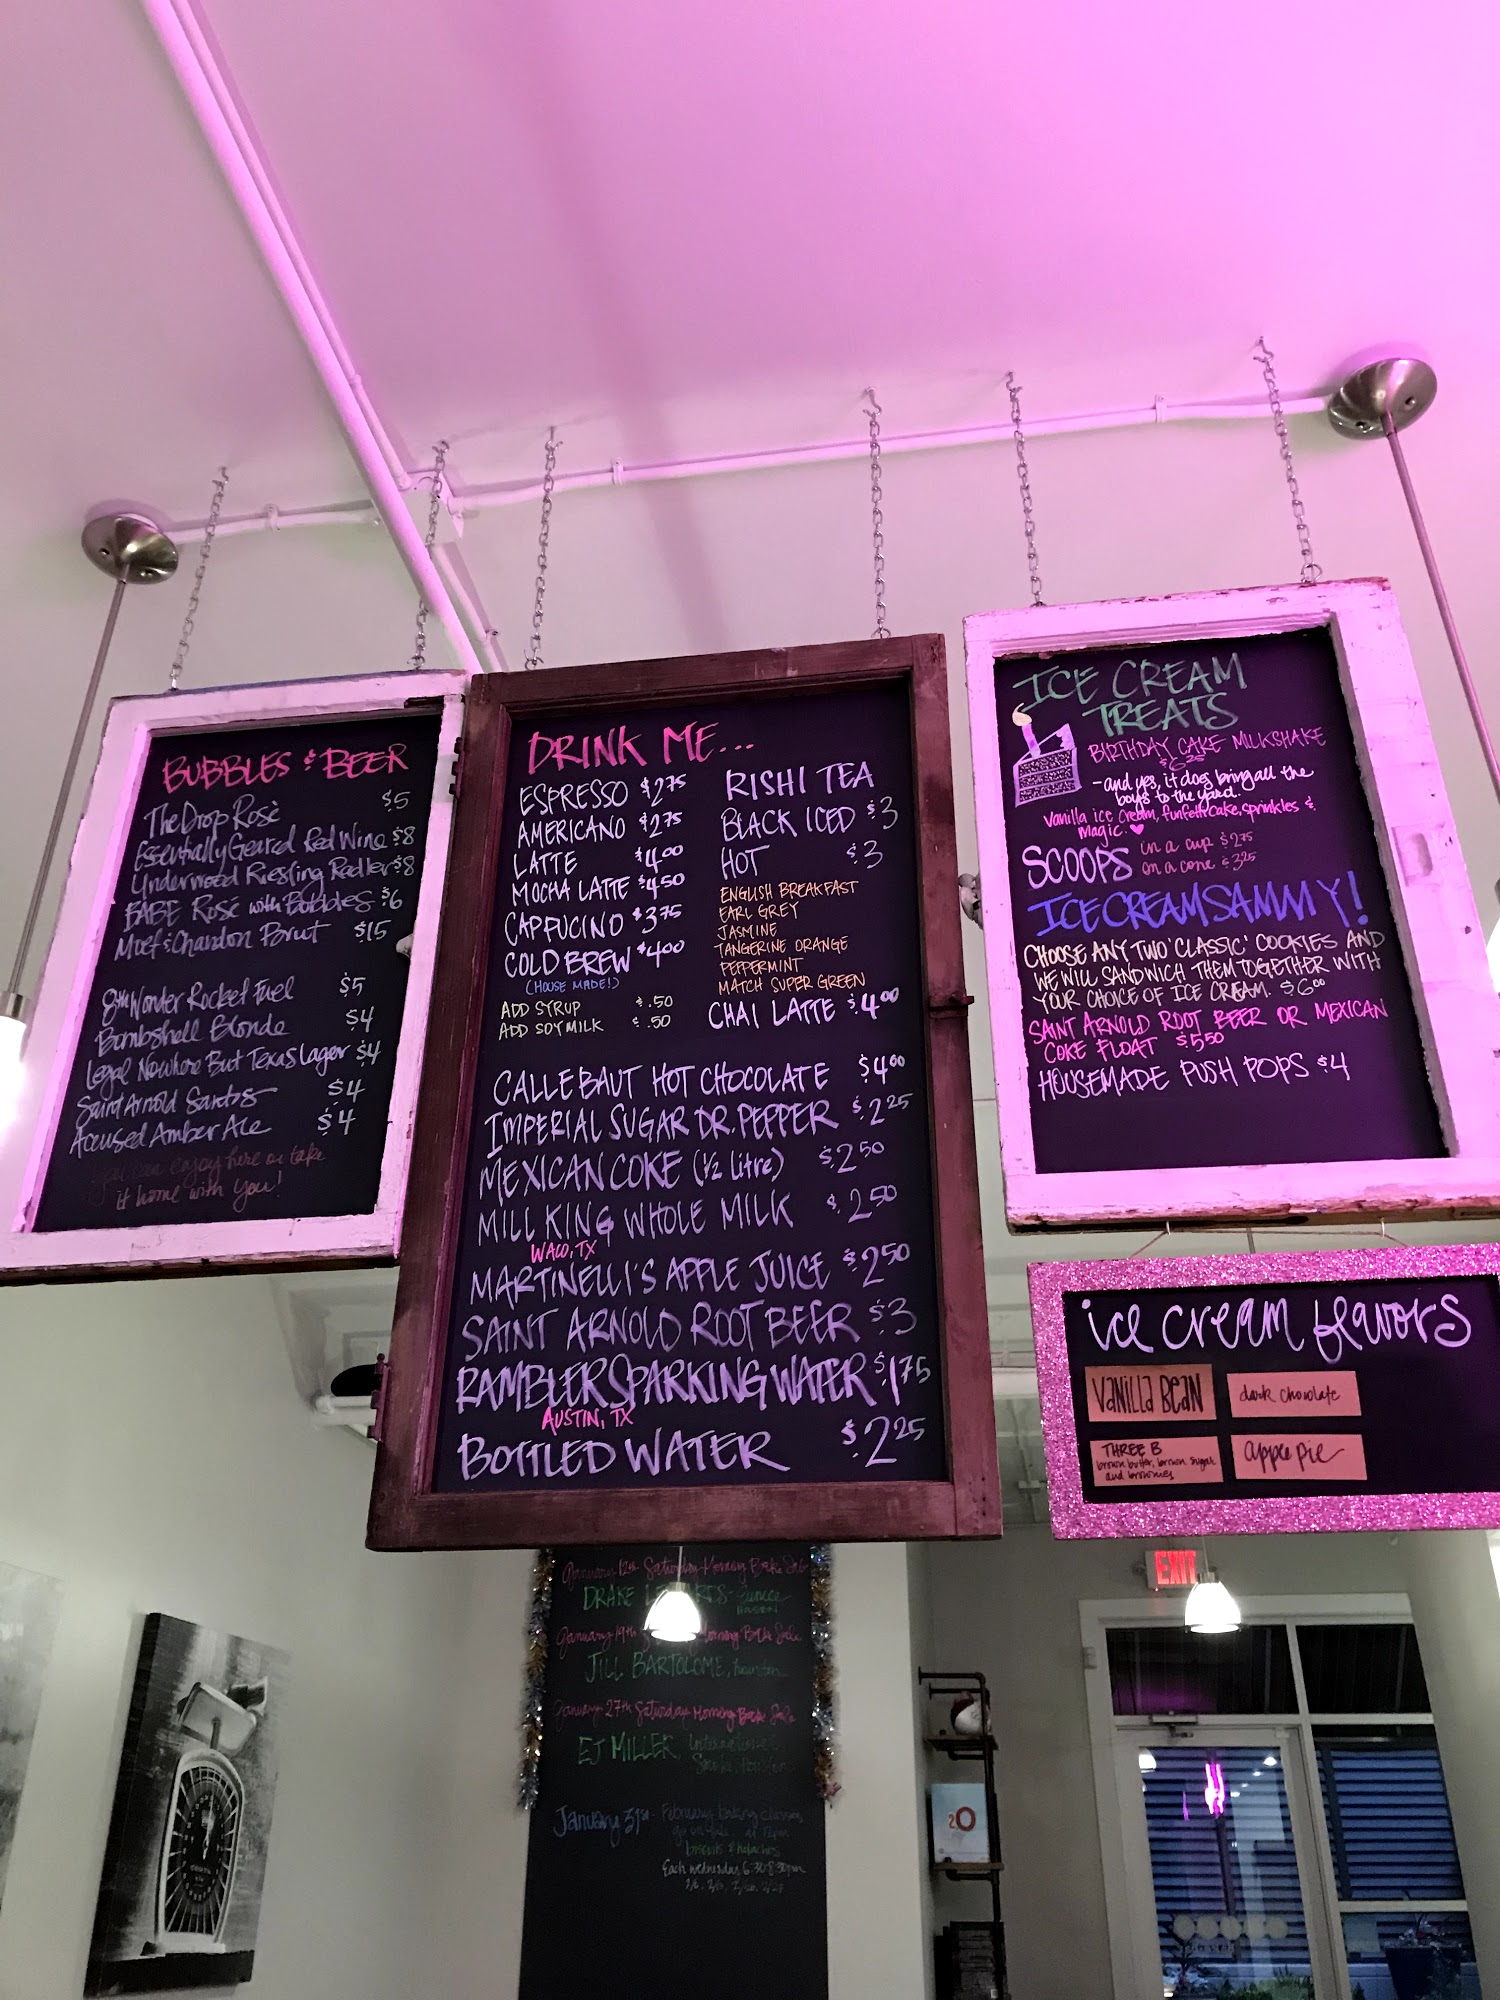 BUBBLES & BEER
The Drop Rosé $5
Essentially Geared Red Wine $8
Underwood Riesling Radler $8
BABE Rosé with Bubbles $6
Moet & Chandon Brut $15
8th Wonder Rocket Fuel $5
Bombshell Blonde $4
Legal Nowhere But Texas Lager $4
Saint Arnold Santos $4
Accused Amber Ale $4
you can enjoy here or take
it home with you!
DRINK ME...
ESPRESSO $2.75
AMERICANO $2.75
LATTE $4.00
MOCHA LATTE $4.50
CAPPUCINO $3.75
COLD BREW $4.00
(HOUSE MADE!)
ADD SYRUP $.50
ADD SOY MILK $.50
RISHI TEA
BLACK ICED $3
HOT $3
ENGLISH BREAKFAST
EARL GREY
JASMINE
TANGERINE ORANGE
PEPPERMINT
MATCH SUPER GREEN
CHAI LATTE $4.00
CALLEBAUT HOT CHOCOLATE $4.00
IMPERIAL SUGAR DR. PEPPER $2.25
MEXICAN COKE (1/2 Litre) $2.50
MILL KING WHOLE MILK $2.50
WACO, TX
MARTINELLI'S APPLE JUICE $2.50
SAINT ARNOLD ROOT BEER $3
RAMBLER SPARKING WATER $1.75
AUSTIN, TX
BOTTLED WATER $2.25
ICE CREAM
TREATS
BIRTHDAY CAKE MILKSHAKE
$6.25
-and yes, it does bring all the
boys to the yard.
Vanilla ice cream, funfetti cake, sprinkles &
magic ♥
SCOOPS in a cup $2.75
on a cone $3.25
ICE CREAM SAMMY!
CHOOSE ANY TWO 'CLASSIC' COOKIES AND
WE WILL SANDWICH THEM TOGETHER WITH
YOUR CHOICE OF ICE CREAM. $6.00
SAINT ARNOLD ROOT BEER OR MEXICAN
COKE FLOAT $5.50
HOUSEMADE PUSH POPS $4
ice cream flavors
Vanilla Bean
dark chocolate
THREE B
brown butter, brown sugar
and brownies
apple pie
EXIT
January 12th Saturday Morning Bake Sale
DRAKE
January 19th Morning Bake Sale
JILL BARTOLOME, houston
January 27th Saturday Morning Bake Sale
EJ MILLER,
January 31st - February baking classes
go on sale at 12pm
Each wednesday 6:30-8:30pm
2.0